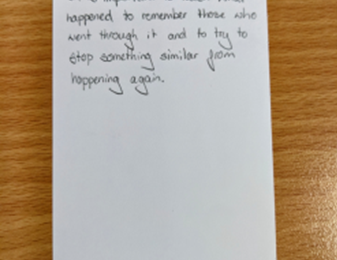 happened to remember those who
went through it and to try to
stop something similar from
happening again.